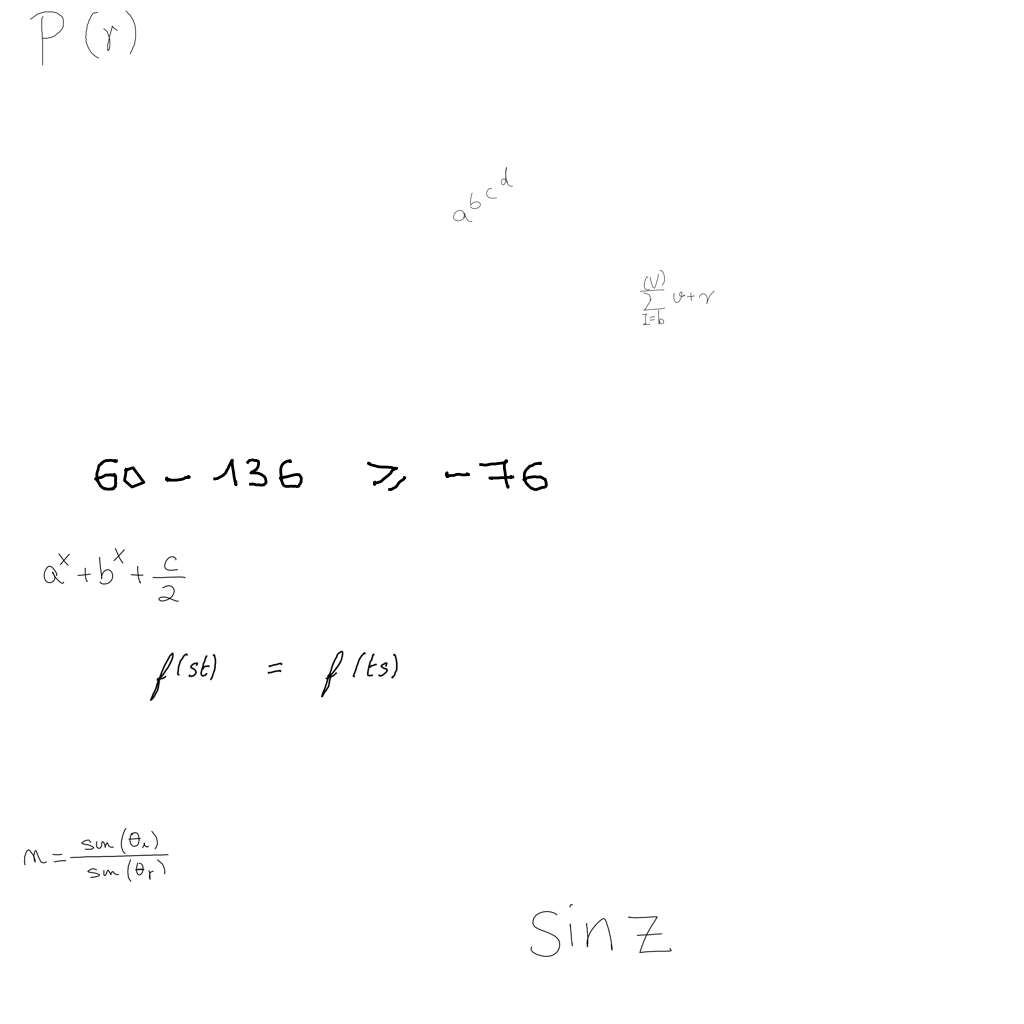 P(r)
a^{b^{c^{d}}}
\sum_{I=b}^{(V)} v+r
60 - 136 ≥ -76
a^x + b^x + \frac{c}{2}
f(st) = f(ts)
n = \frac{sin(θ_i)}{sin(θ_r)}
sin z